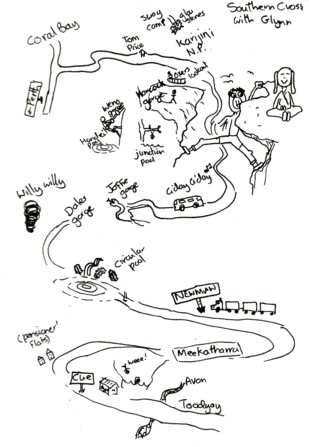 Southern Cross
with Glynn
Coral Bay
Tom
Price
Sway
camp
Karijini
N.P.
← Perth
Oxers
lookout
Hancock
gorge
Weano
gorge
Handrail
pool
junction
pool
Willy willy
Dales
gorge
Joffre
gorge
Giday Giday
Circular
pool
NEWMAN
('pensioner'
flats)
Meekatharra
Cue
weee!
Avon
Toodyay